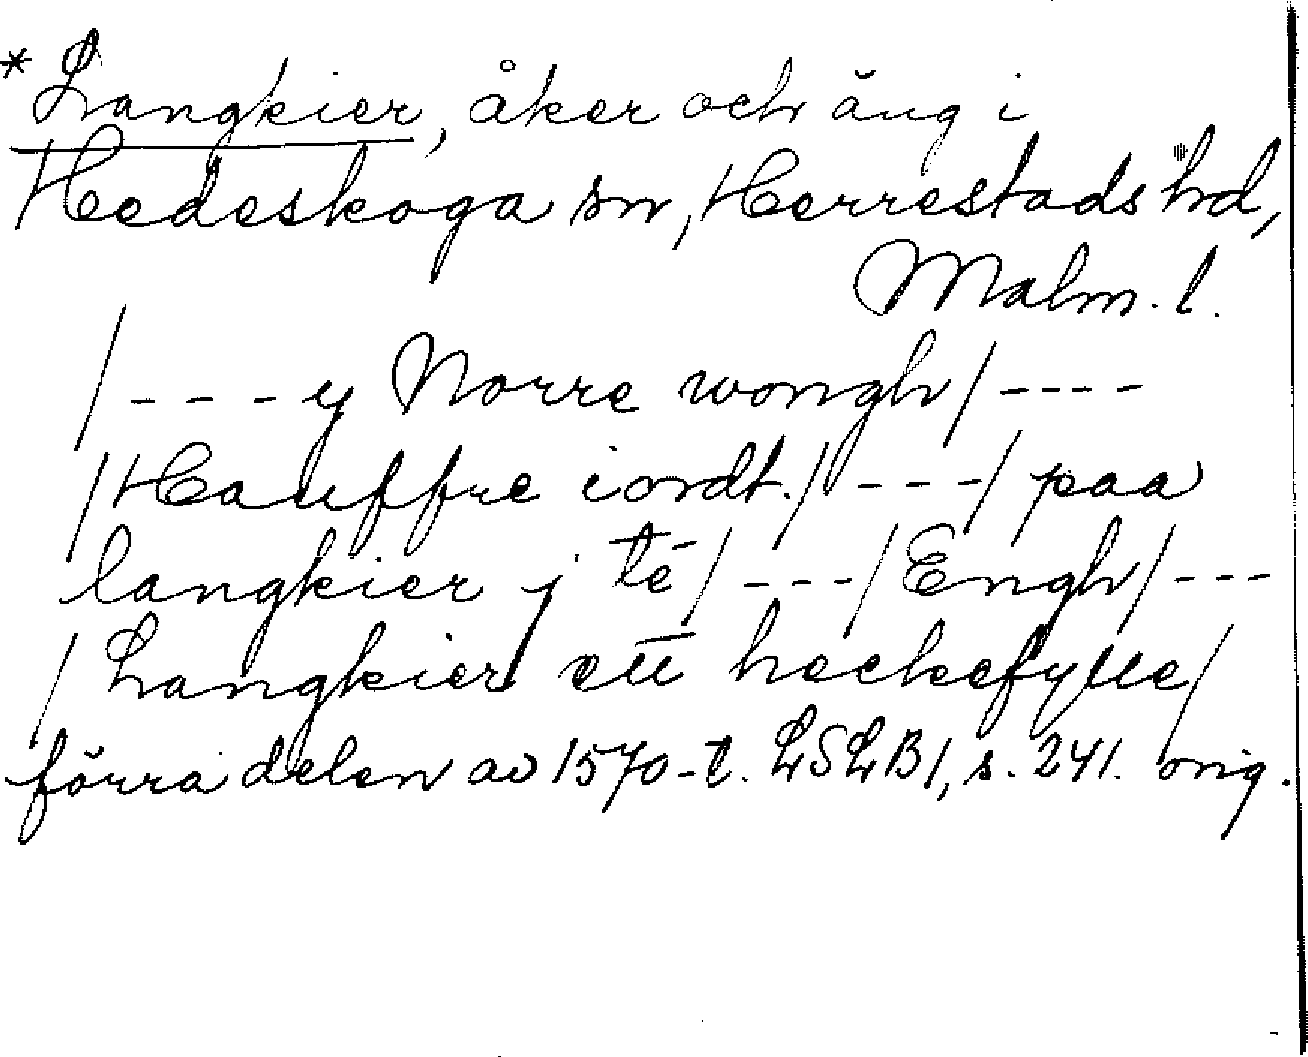 * Langkier, åker och äng i
Hedeskoga sn, Herrestads hd,
Malm. l.
/ - - - y Norre wongh / - - - -
/ Hauffre iordt. / - - - / paa
langkier j tē / - - - / Engh / - - -
/ Langkier ett heckefylle /
förra delen av 1570-t. LSLB1, s. 241. orig.